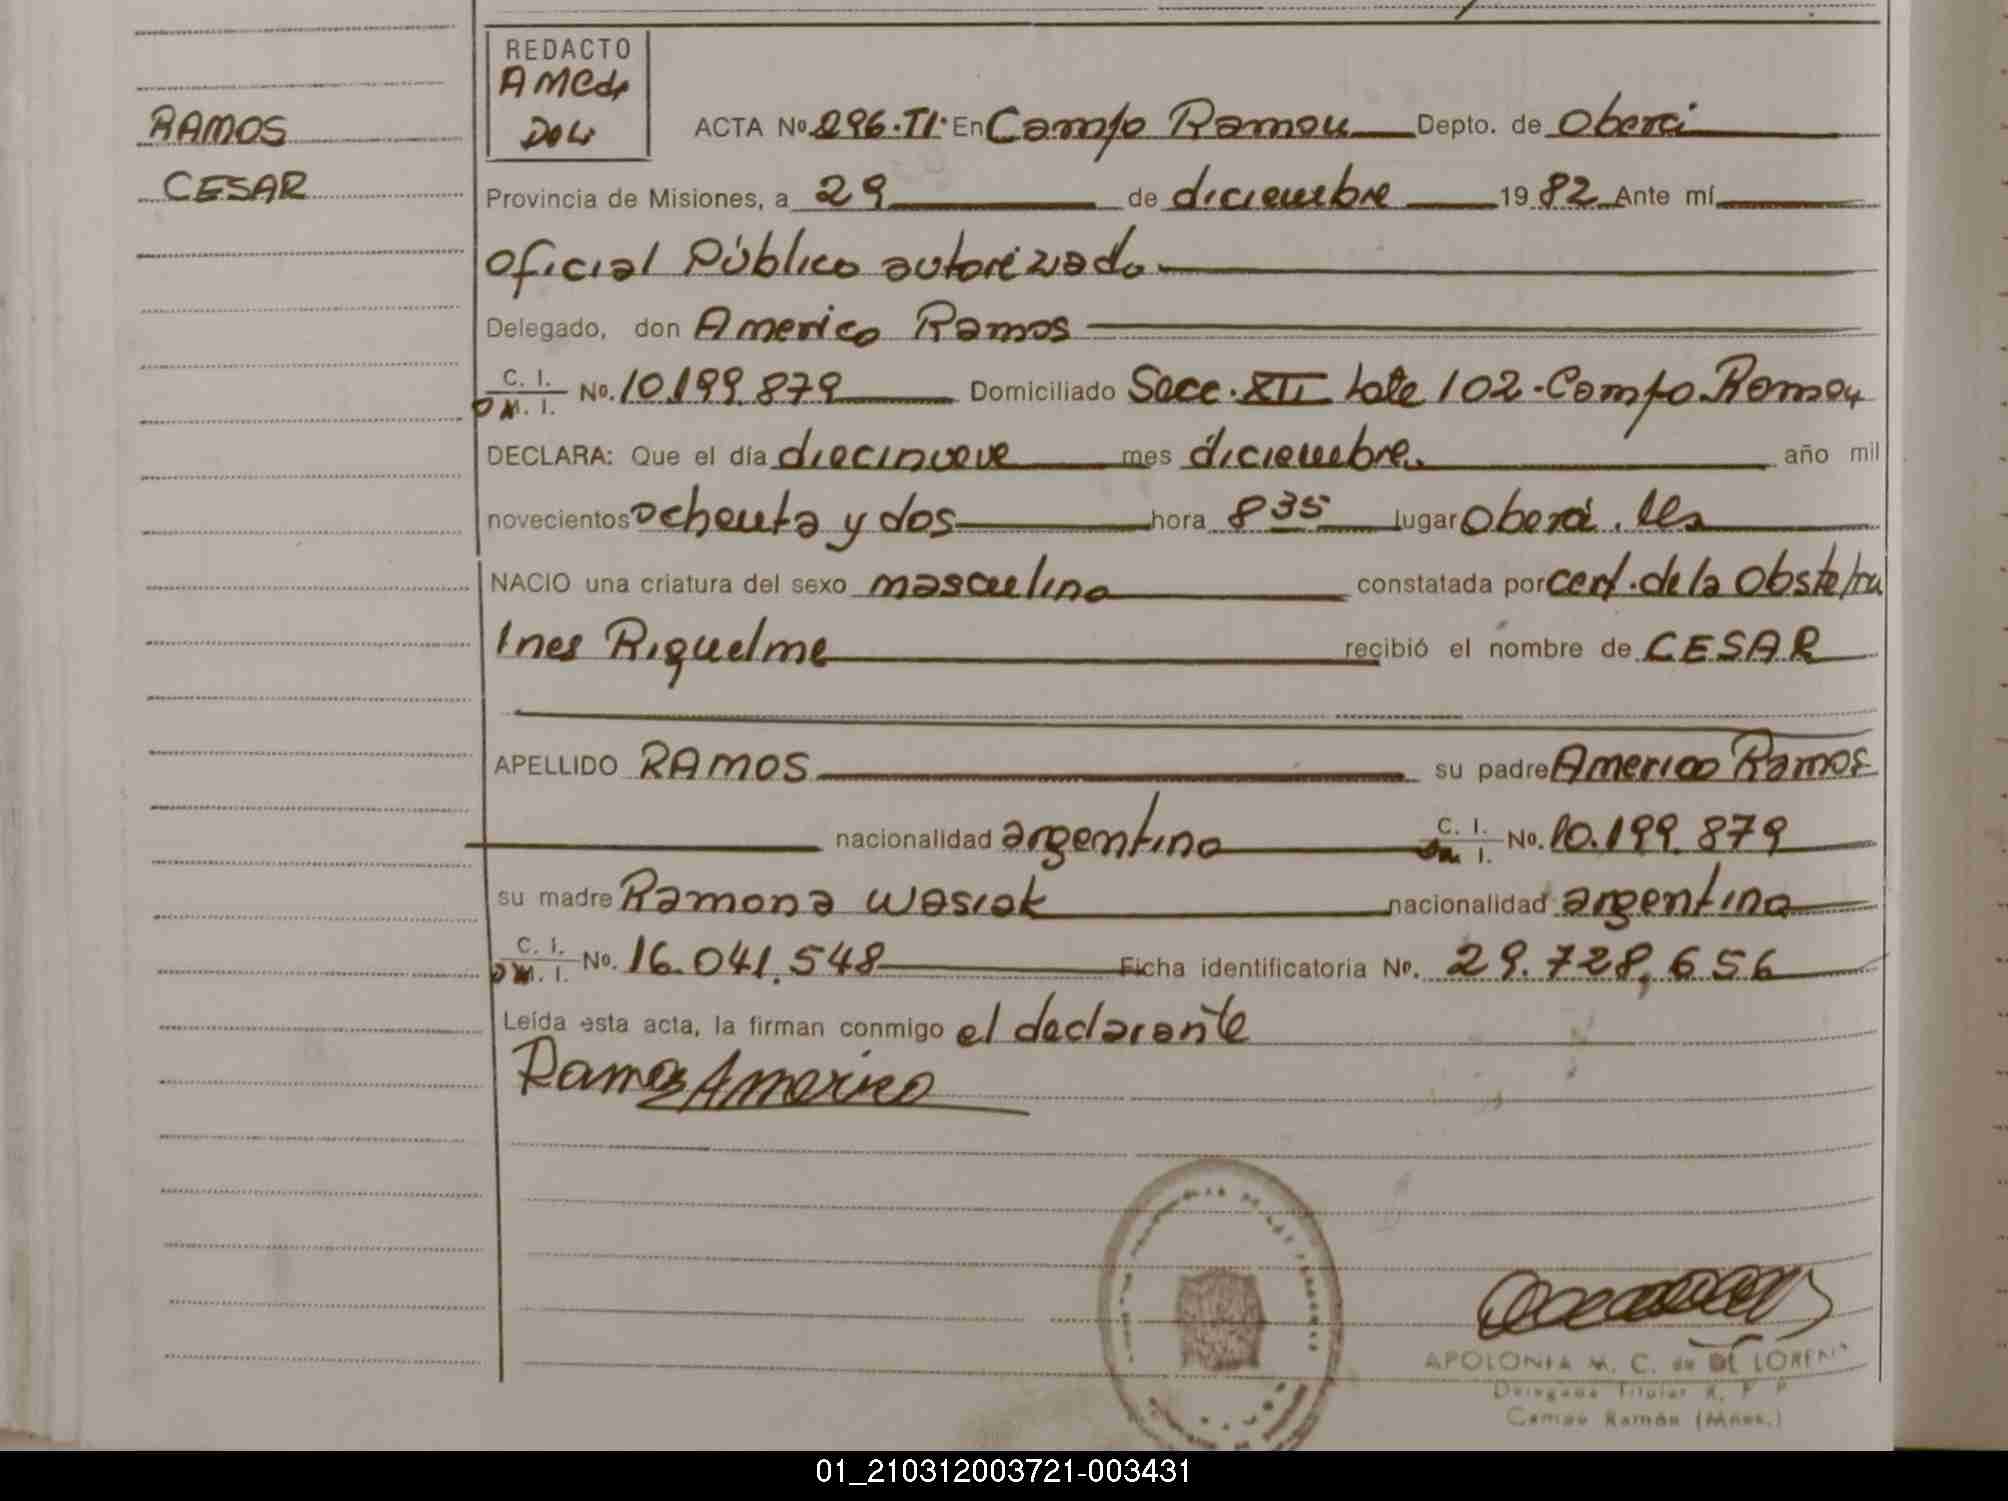 RAMOS
CESAR
REDACTO
AMCde
DOLi
ACTA No 296.TI. En Campo Ramon Depto. de Oberá
Provincia de Misiones, a 29 de diciembre 19 82 Ante mí
Oficial Público autorizado
Delegado, don Americo Ramos
C. I.
D M. I. No. 10.199.879 Domiciliado Secc. XII Lote 102 - Campo Ramon
DECLARA: Que el día diecinueve mes diciembre año mil
novecientos ochenta y dos hora 8 35 lugar Oberá.
NACIO una criatura del sexo masculino constatada por cert. de la Obstetra
Ines Riquelme recibió el nombre de CESAR
APELLIDO RAMOS su padre Americo Ramos
nacionalidad argentino C. I. No. 10.199.879
su madre Ramona Wasiak nacionalidad argentina
C. I.
D M. I. No. 16.041.548 Ficha identificatoria No. 29.728,656
Leída esta acta, la firman conmigo el declarante
Ramos Americo
APOLONIA M. C. de DE LORENZ
Delegada Titular R. P. P
Campo Ramón (Mnes.)
01_210312003721-003431